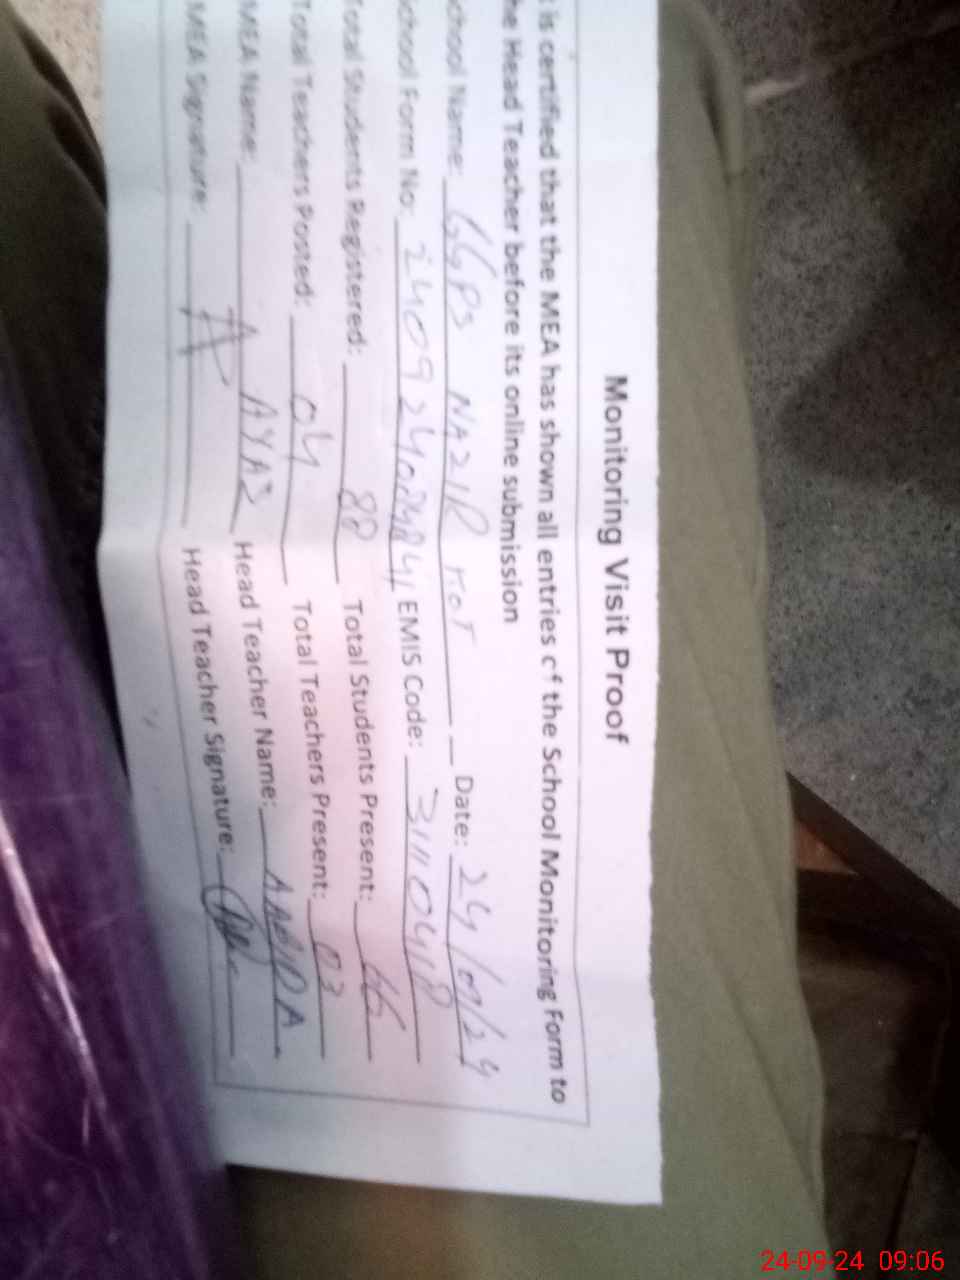 Monitoring Visit Proof
is certified that the MEA has shown all entries of the School Monitoring Form to
he Head Teacher before its online submission
chool Name: GGPS NAZIR KOT Date: 24/09/24
chool Form No: EMIS Code: 31110418
Total Students Registered: 88 Total Students Present: 66
Total Teachers Posted: 04 Total Teachers Present: 03
MEA Name: AYAS Head Teacher Name: AABIDA
MEA Signature: Head Teacher Signature:
24-09-24 09:06